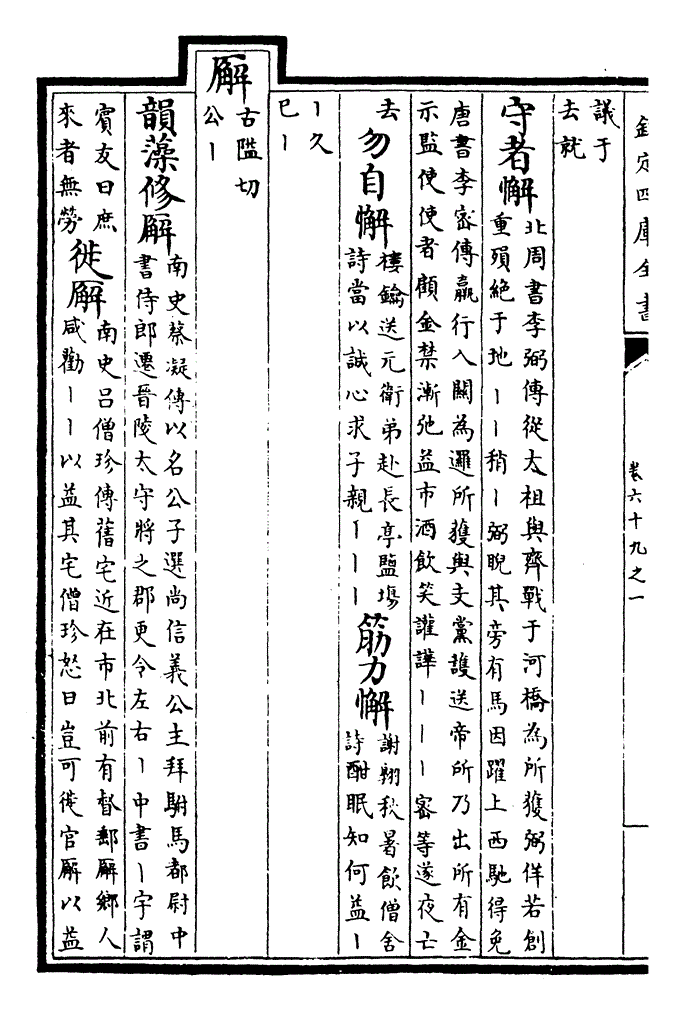 欽定四庫全書
卷六十九之一
議于
去就
守者懈
北周書李弼傳從太祖與齊戰于河橋為所獲弼佯若創
重殞絶于地丨丨稍丨弼睨其旁有馬因躍上西馳得免
唐書李密傳羸行入關為邏所獲與支黨護送帝所乃出所有金
示監使使者顧金禁漸弛益市酒飲笑讙譁丨丨丨密等遂夜亡
去
勿自懈
樓鑰送元衛弟赴長亭鹽塲
詩當以誠心求子親丨丨丨
筋力懈
謝翺秋暑飲僧舍
詩酣眠知何益丨
丨久
已丨
廨
古隘切
公丨
韻藻修廨
南史蔡凝傳以名公子選尚信義公主拜駙馬都尉中
書侍郎遷晉陵太守將之郡更令左右丨中書丨宇謂
賓友曰庶
來者無勞
徙廨
南史呂僧珍傳舊宅近在市北前有督郵廨鄉人
咸勸丨丨以益其宅僧珍怒曰豈可徙官廨以益